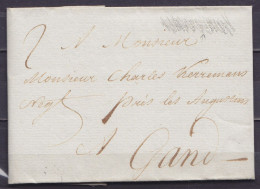 2 A Monsieur
Monsieur Charles
Negt près les Augustins
A Gand